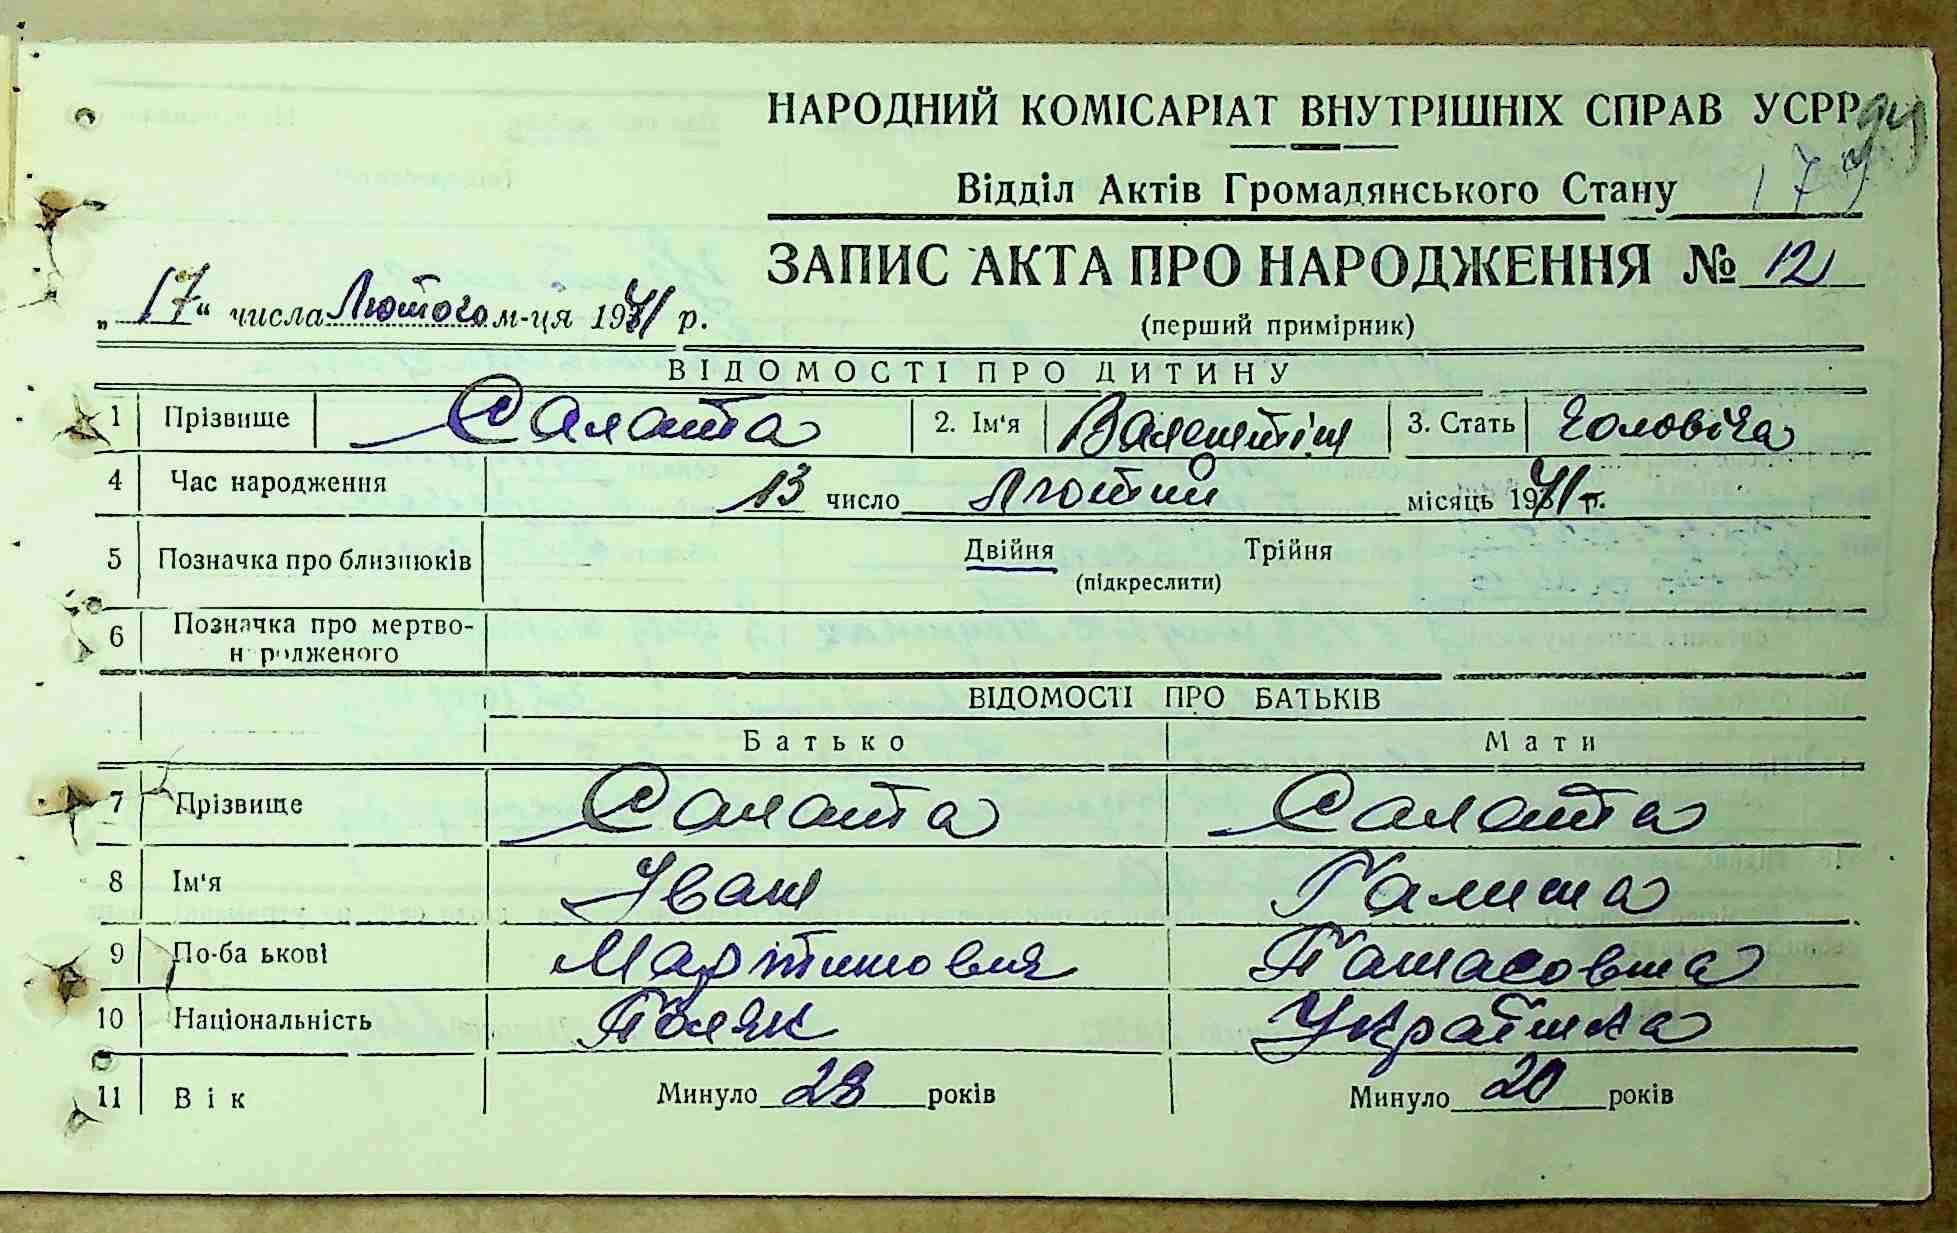 НАРОДНИЙ КОМІСАРІАТ ВНУТРІШНІХ СПРАВ УСРР
Відділ Актів Громадянського Стану 179
ЗАПИС АКТА ПРО НАРОДЖЕННЯ № 12
„17“ числа Лютого м-ця 1941 р.
(перший примірник)
ВІДОМОСТІ ПРО ДИТИНУ
1 Прізвище Салата 2. Ім'я Валентін 3. Стать Чоловіча
4 Час народження 13 число Лютий місяць 1941 р.
5 Позначка про близнюків Двійня Трійня
(підкреслити)
6 Позначка про мертво-
н родженого
ВІДОМОСТІ ПРО БАТЬКІВ
Батько Мати
7 Прізвище Салата Салата
8 Ім'я Іван Галина
9 По-ба ькові Мартиновия Панасовна
10 Національність Поляк Українка
11 Вік Минуло 28 років Минуло 20 років